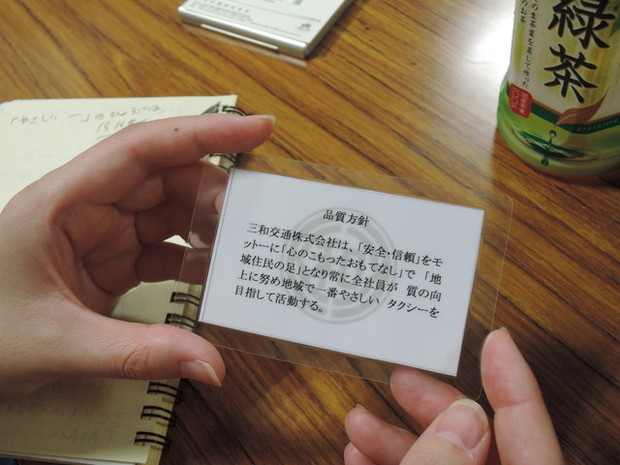 品質方針
三和交通株式会社は、「安全・信頼」をモ
ットーに「心のこもったおもてなし」で「地
域住民の足」となり常に全社員が 質の向
上に努め地域で一番やさしい タクシーを
目指して活動する。
緑茶